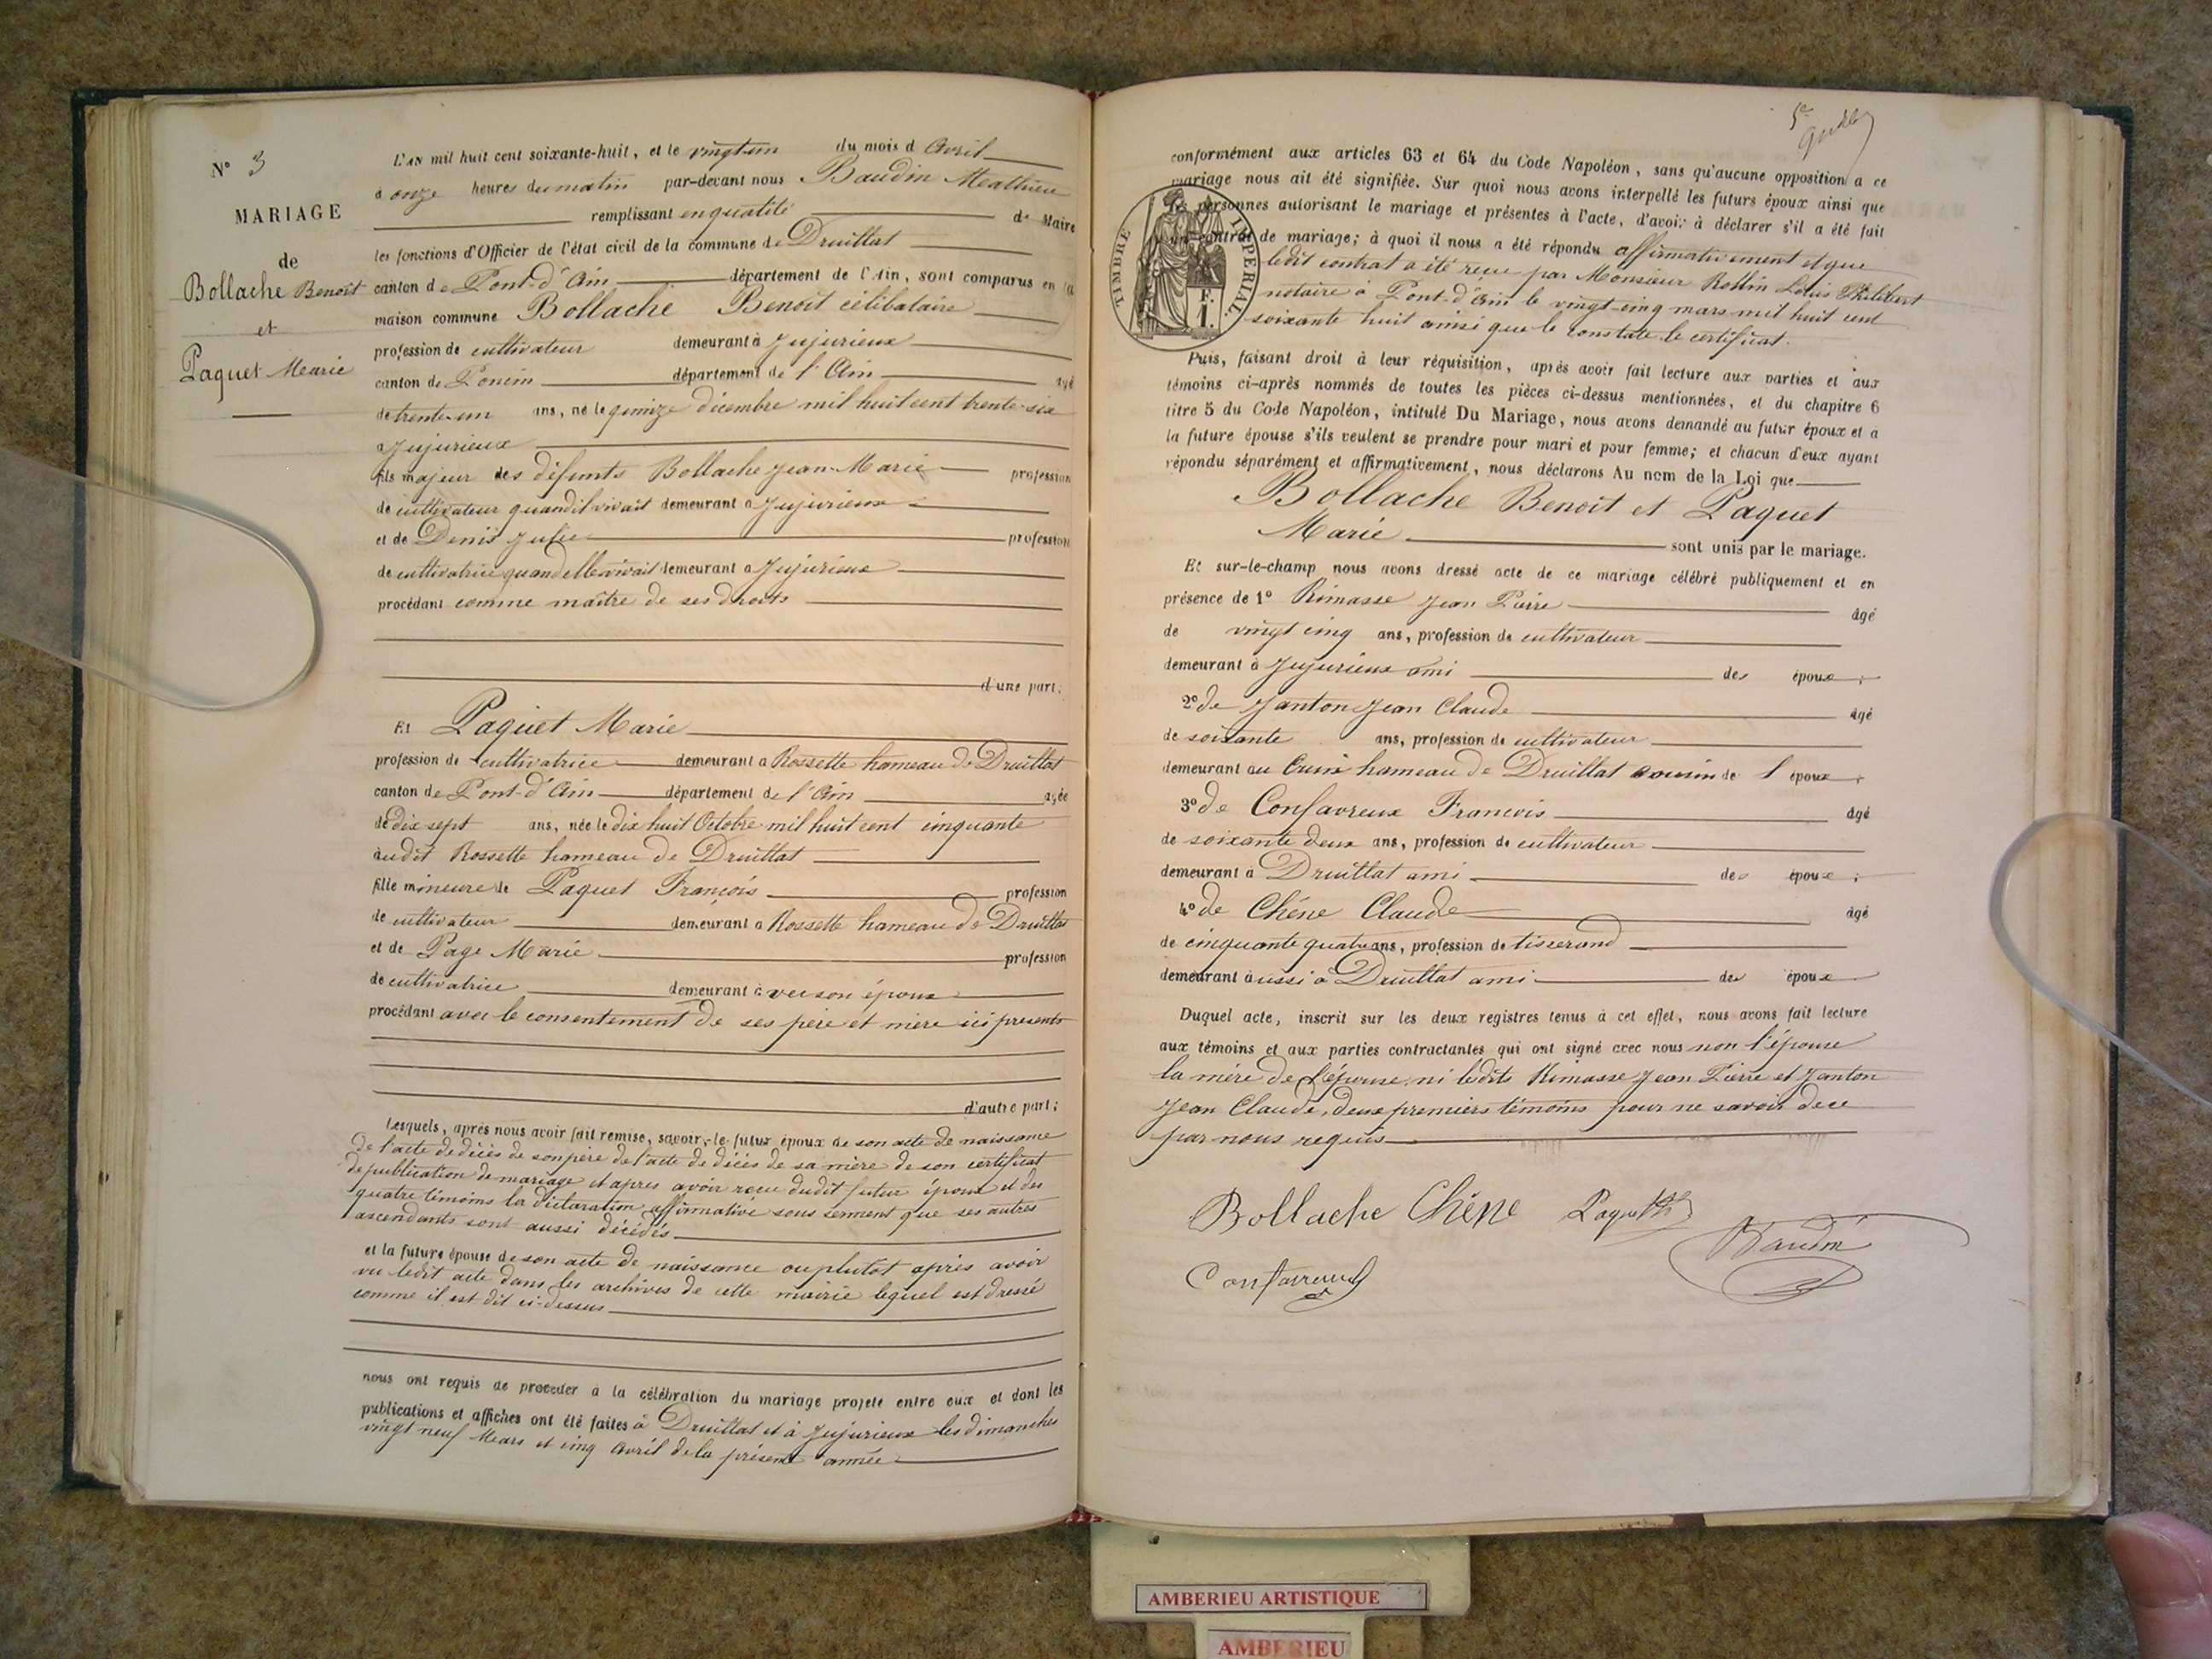 N° 3
MARIAGE
de
Bollache Benoit
et
Paquet Marie
L'AN mil huit cent soixante-huit, et le vingt-un du mois d Avril
à onze heures du matin par-devant nous Baudin Mathieu
remplissant en qualité de Maire
les fonctions d'Officier de l'état civil de la commune de Druillat
canton de Pont-d'Ain département de l'Ain, sont comparus en la
maison commune Bollache Benoit célibataire
profession de cultivateur demeurant à Jujurieux
canton de Poncin département de l'Ain âgé
de trente-un ans, né le quinze décembre mil huit cent trente-six
a Jujurieux
fils majeur des défunts Bollache Jean-Marie profession
de cultivateur quand il vivait demeurant a Jujurieux
et de Denis Julie profession
de cultivatrice quand elle vivait demeurant a Jujurieux
procédant comme maître de ses droits
d'une part;
Et Paquet Marie
profession de cultivatrice demeurant a Rossette hameau de Druillat
canton de Pont-d'Ain département de l'Ain agée
de dix sept ans, née le dix huit Octobre mil huit cent cinquante
audit Rossette hameau de Druillat
fille mineure de Paquet François profession
de cultivateur demeurant a Rossette hameau de Druillat
et de Page Marie profession
de cultivatrice demeurant avec son époux
procédant avec le consentement de ses père et mère ici présents
d'autre part;
Lesquels, après nous avoir fait remise, savoir, le futur époux de son acte de naissance
de l'acte de décès de son père de l'acte de décès de sa mère de son certificat
de publication de mariage et apres avoir reçu dudit futur époux et des
quatre témoins la déclaration affirmative sous serment que ses autres
ascendants sont aussi décédés
et la future épouse de son acte de naissance ou plutôt après avoir
vu ledit acte dans les archives de cette mairie lequel est dressé
comme il est dit ci-dessus
nous ont requis de procéder à la célébration du mariage projeté entre eux et dont les
publications et affiches ont été faites à Druillat et à Jujurieux les dimanches
vingt neuf Mars et cinq Avril de la présente année
conformément aux articles 63 et 64 du Code Napoléon, sans qu'aucune opposition a ce
mariage nous ait été signifiée. Sur quoi nous avons interpellé les futurs époux ainsi que
les personnes autorisant le mariage et présentes à l'acte, d'avoir à déclarer s'il a été fait
un contrat de mariage; à quoi il nous a été répondu affirmativement et que
ledit contrat a été reçu par Monsieur Rollin Louis Philibert
notaire à Pont-d'Ain le vingt-cinq mars mil huit cent
soixante huit ainsi que le constate le certificat.
TIMBRE IMPERIAL
1 F.
Puis, faisant droit à leur réquisition, après avoir fait lecture aux parties et aux
témoins ci-après nommés de toutes les pièces ci-dessus mentionnées, et du chapitre 6
titre 5 du Code Napoléon, intitulé Du Mariage, nous avons demandé au futur époux et a
la future épouse s'ils veulent se prendre pour mari et pour femme; et chacun d'eux ayant
répondu séparément et affirmativement, nous déclarons Au nom de la Loi que
Bollache Benoit et Paquet
Marie sont unis par le mariage.
Et sur-le-champ nous avons dressé acte de ce mariage célébré publiquement et en
présence de 1° Rimasse Jean Pierre âgé
de vingt cinq ans, profession de cultivateur
demeurant à Jujurieux ami des époux;
2° de Janton Jean Claude âgé
de soixante ans, profession de cultivateur
demeurant au hameau de Druillat cousin de l'époux;
3° de Confavreux Francois âgé
de soixante deux ans, profession de cultivateur
demeurant à Druillat ami des époux;
4° de Chêne Claude âgé
de cinquante quatre ans, profession de tisserand
demeurant aussi à Druillat ami des époux
Duquel acte, inscrit sur les deux registres tenus à cet effet, nous avons fait lecture
aux témoins et aux parties contractantes qui ont signé avec nous non l'épouse
la mère de l'épouse, ni ledits Rimasse Jean Pierre et Janton
Jean Claude, deux premiers témoins pour ne savoir de ce
par nous requis
Bollache Chêne Paquet Baudin
Confavreux
AMBERIEU ARTISTIQUE
AMBERIEU